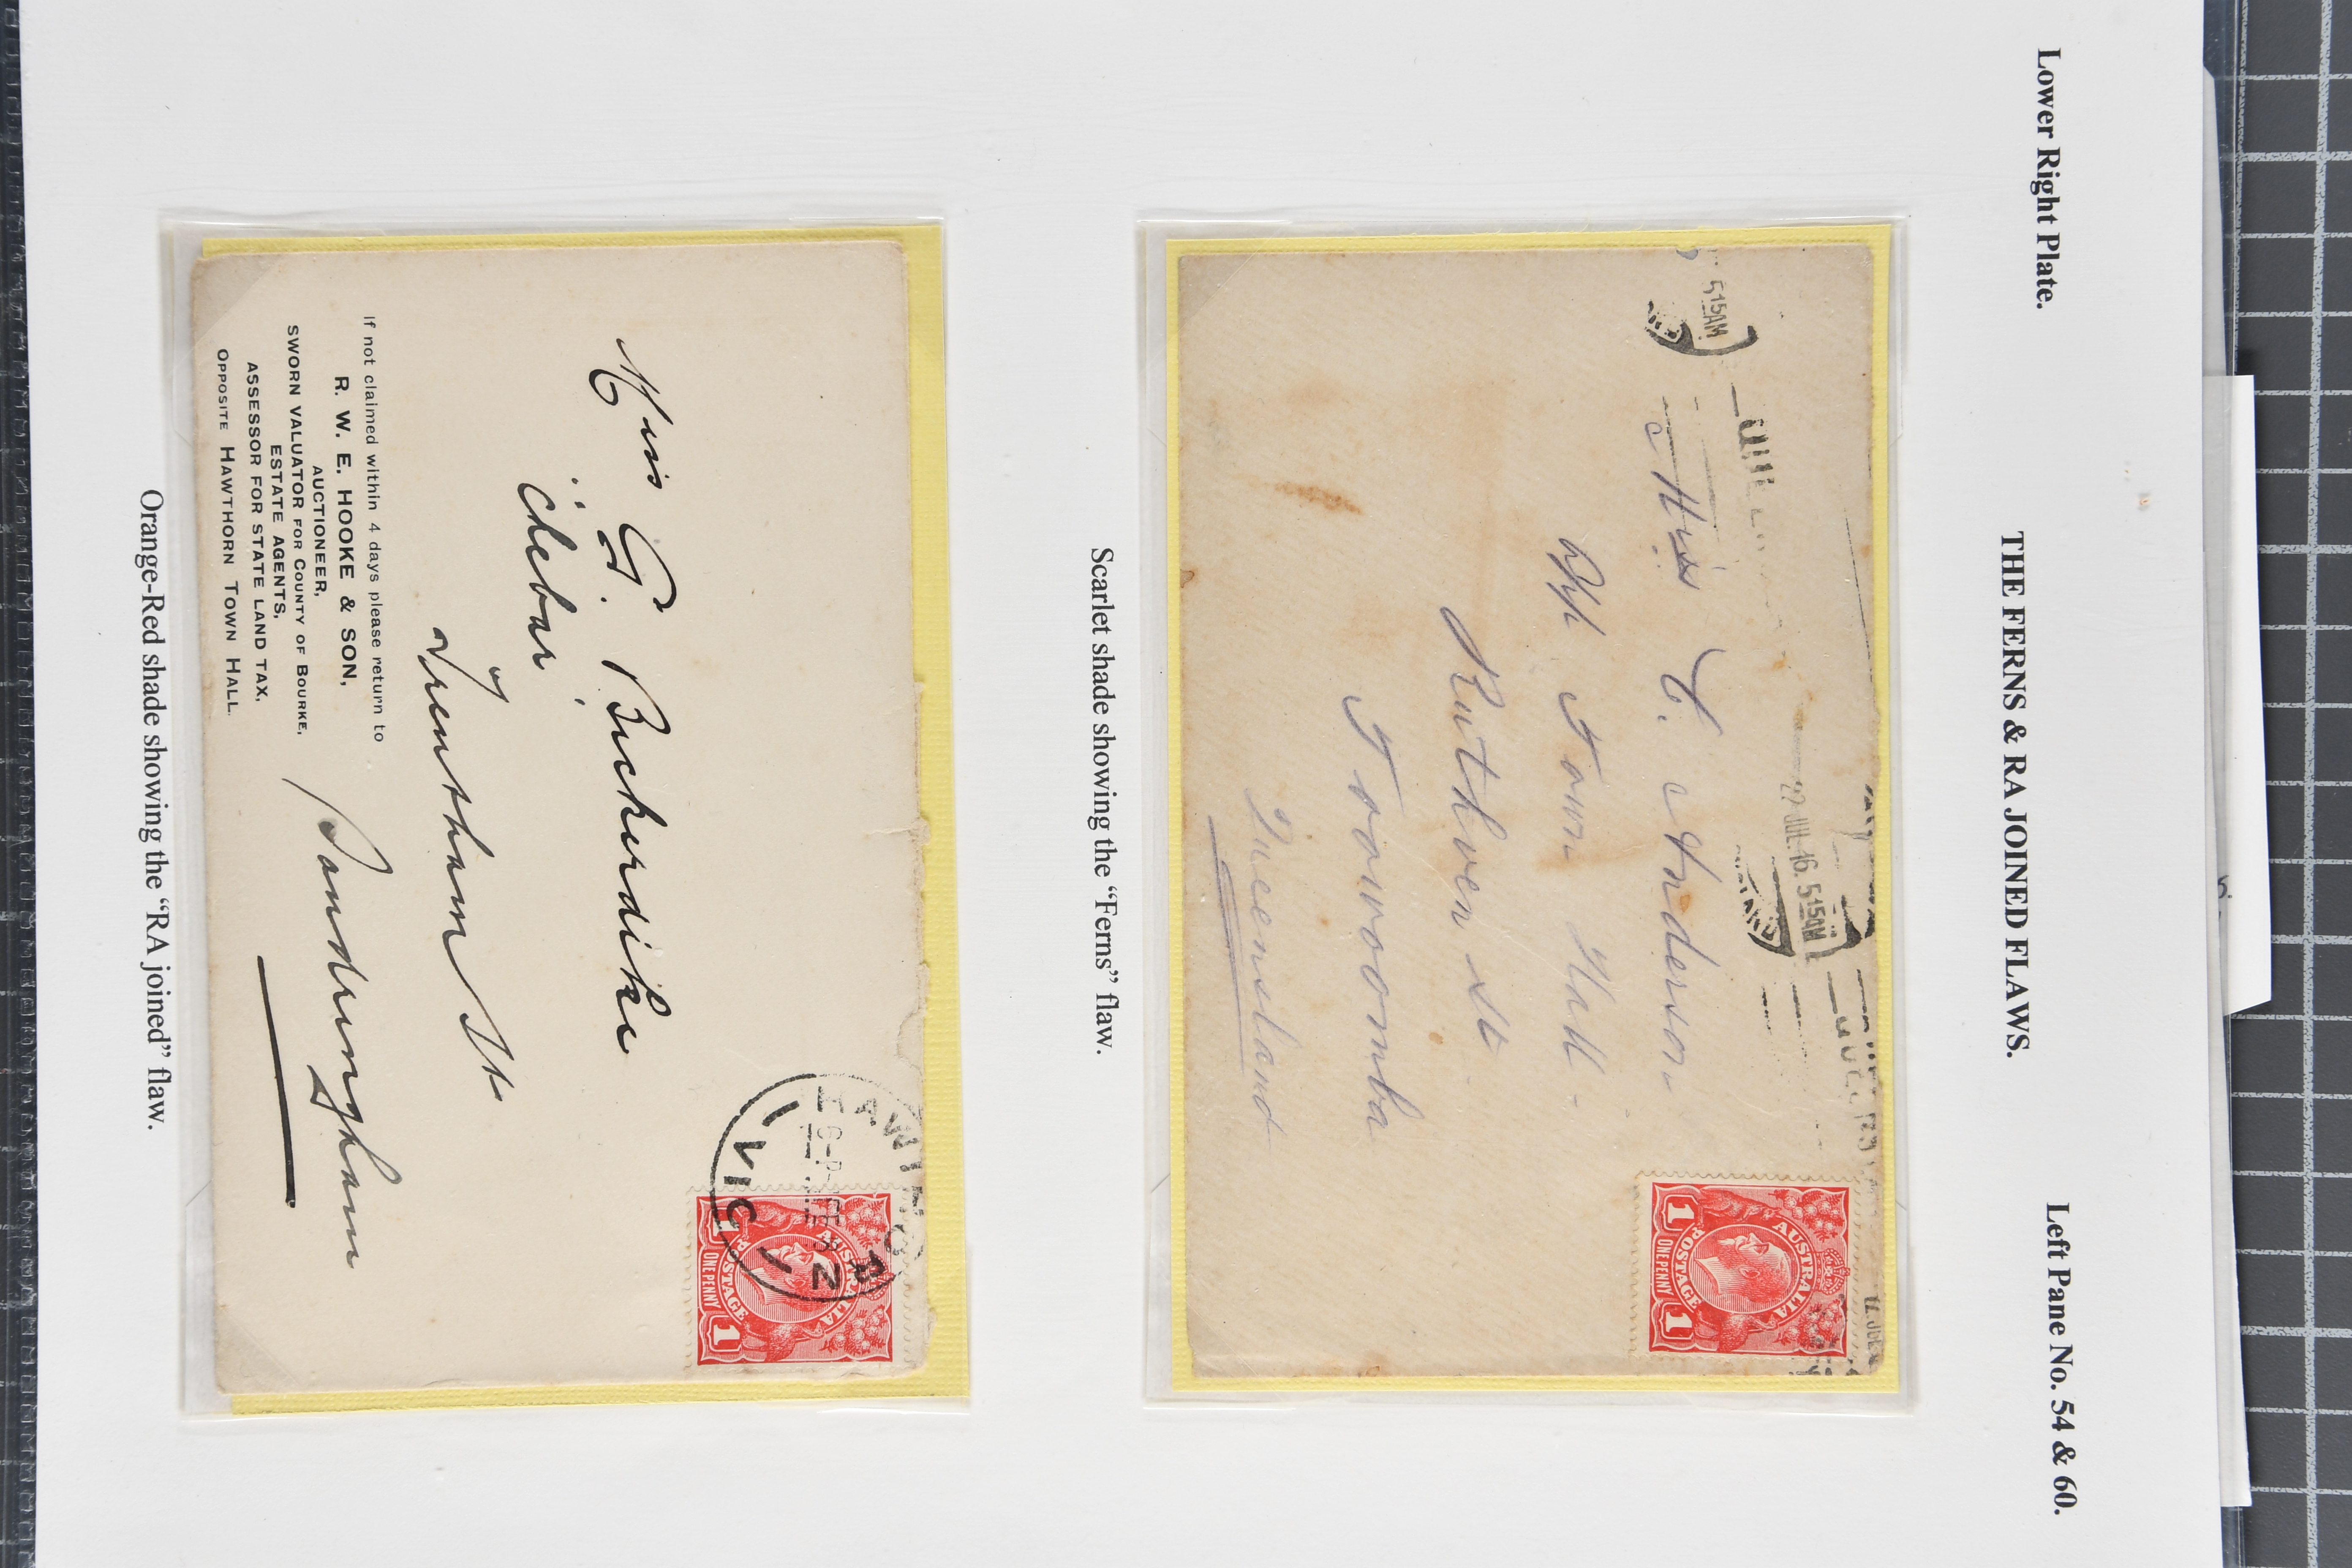 Lower Right Plate.
Left Pane No. 54 & 60.
THE FERNS & RA JOINED FLAWS.
515AM
JUL
22 JUL.16.515AM
Miss C. Anderson
Opp Town Hall
Ruthven St
Toowoomba
Queensland
AUSTRALIA
POSTAGE
1 1
ONE PENNY
Scarlet shade showing the “Ferns” flaw.
VIC
AUSTRALIA
POSTAGE
1
ONE PENNY
Miss G. Bickerdike
"
Trentham St
Sandringham
If not claimed within 4 days please return to
R. W. E. HOOKE & SON,
AUCTIONEER,
SWORN VALUATOR FOR COUNTY OF BOURKE,
ESTATE AGENTS,
ASSESSOR FOR STATE LAND TAX,
OPPOSITE HAWTHORN TOWN HALL.
Orange-Red shade showing the “RA joined” flaw.